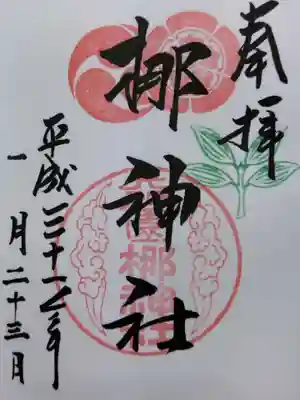 奉拝
梛神社
平成三十一年
一月二十三日
梛神社